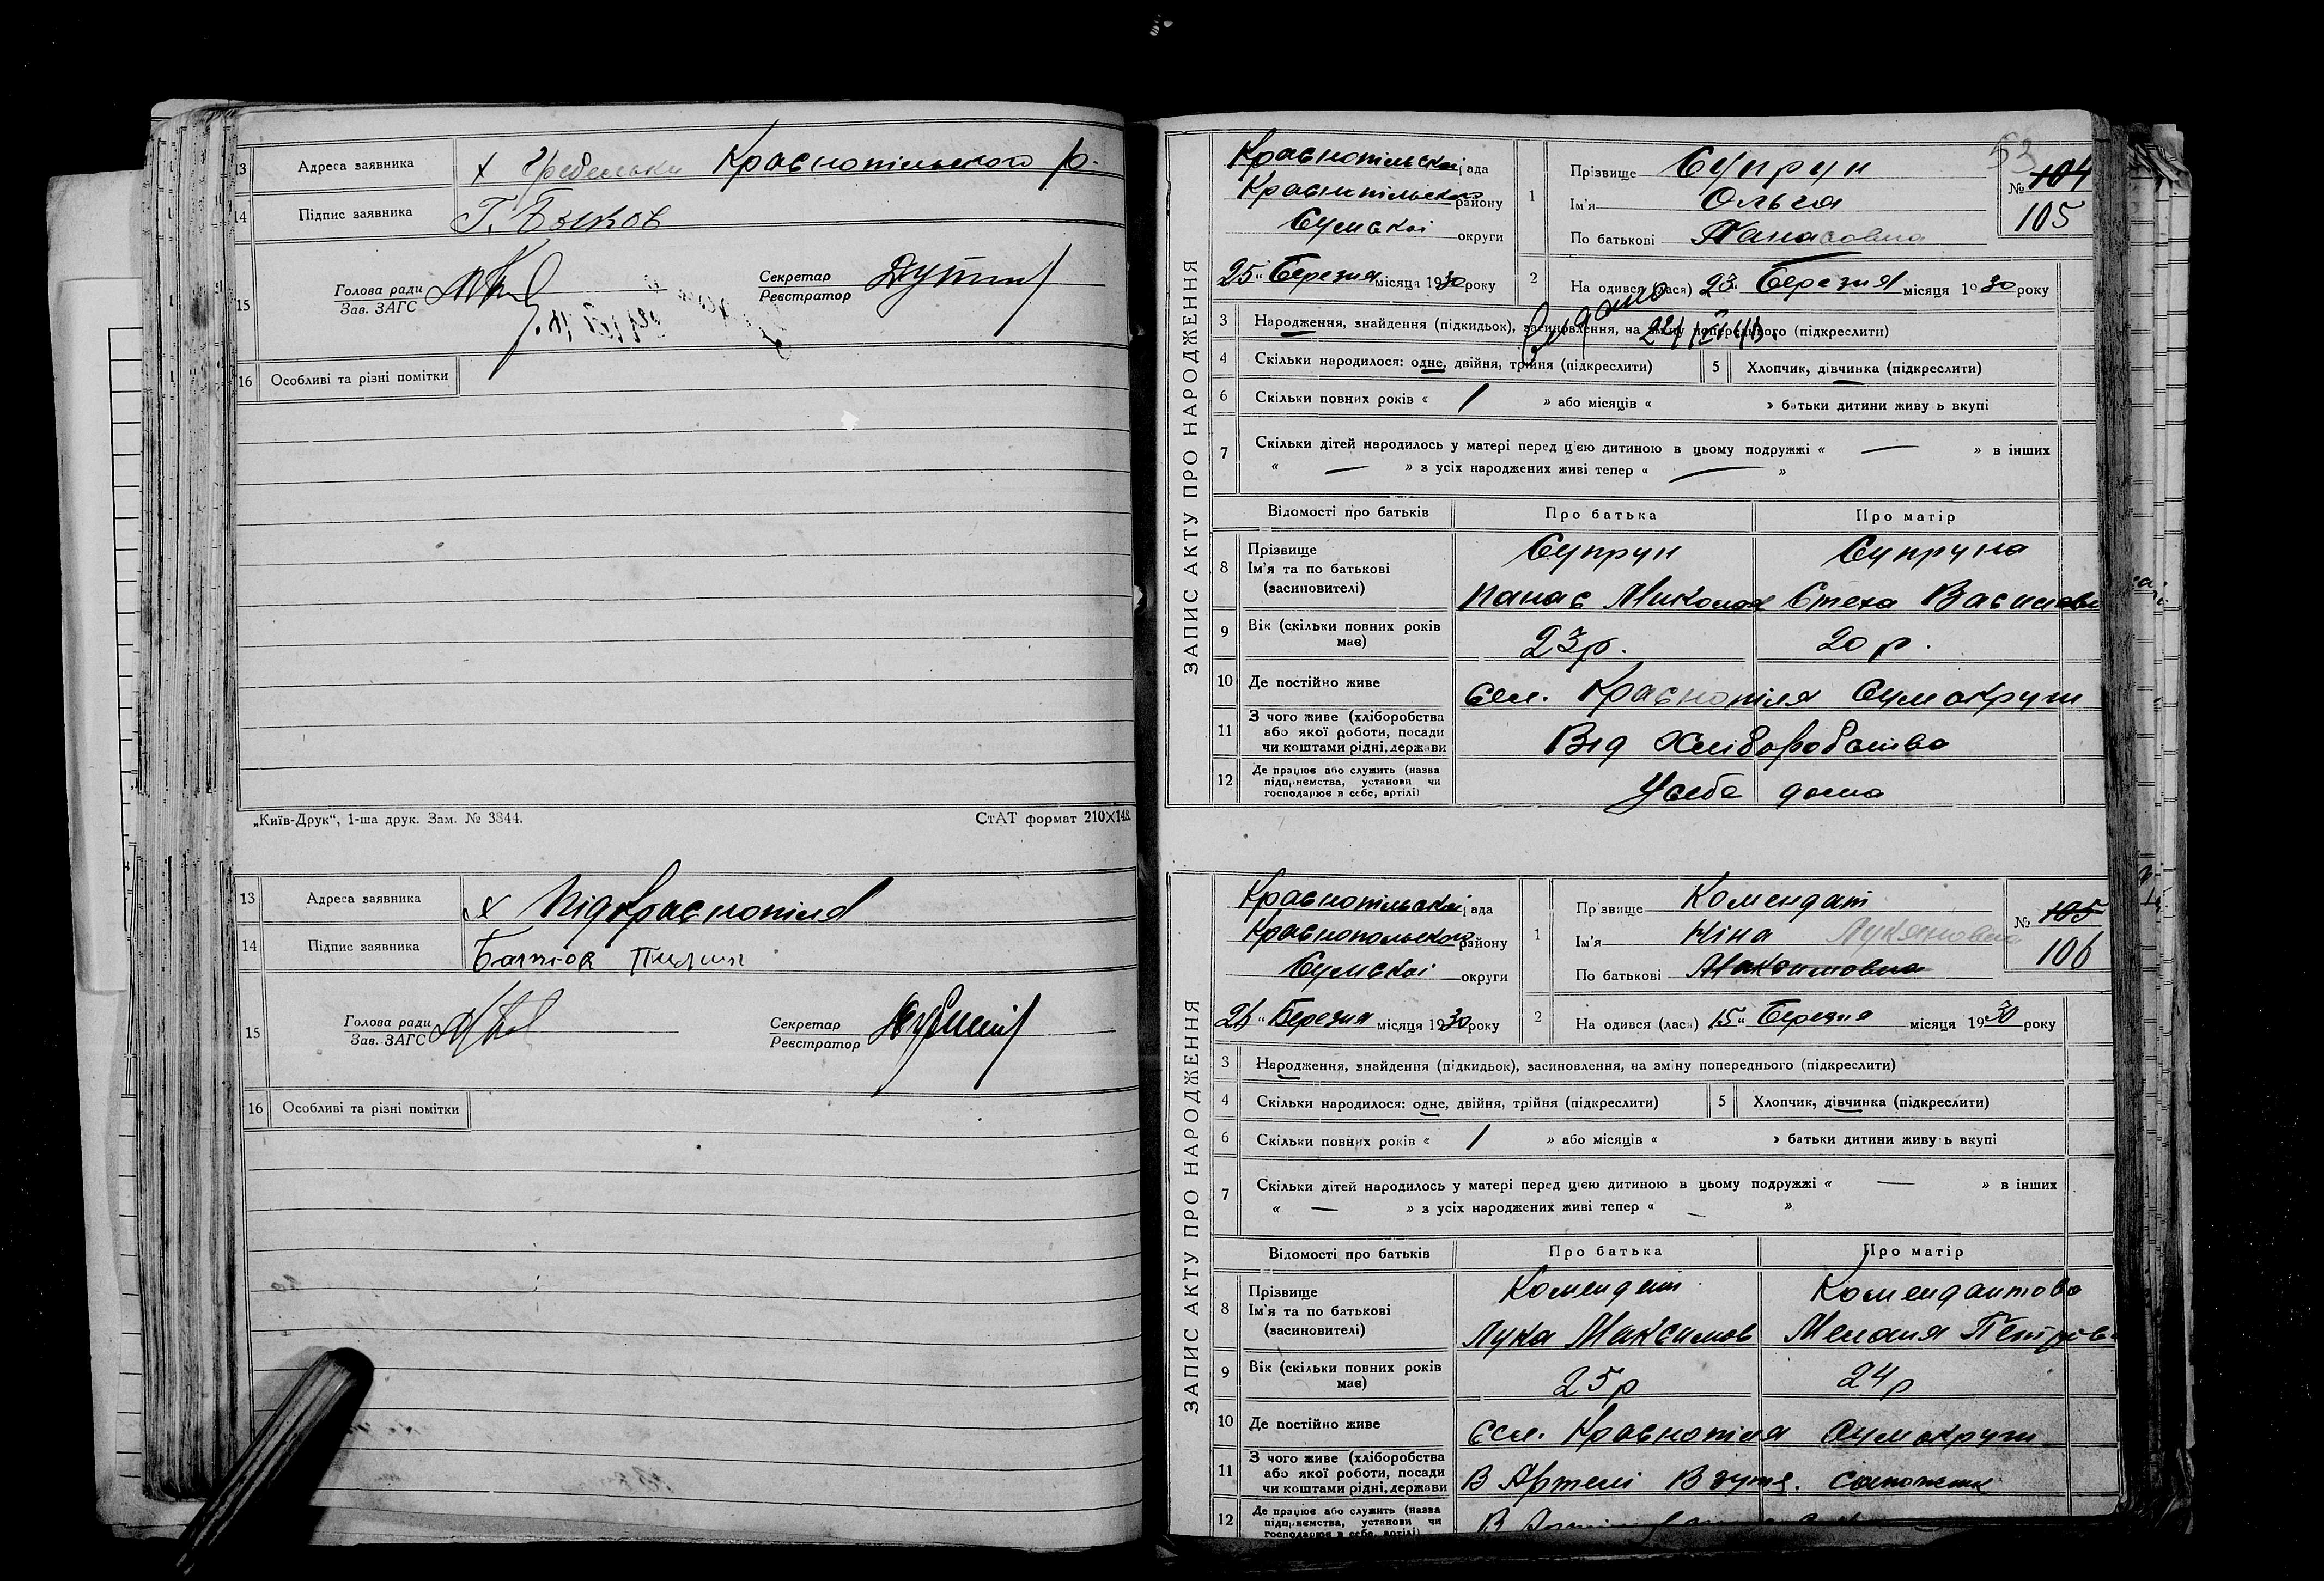 13 Адреса заявника х Гребельки Краснопільського р-
14 Підпис заявника Г. Биков
15 Голова ради Зав. ЗАГС Секретар Реєстратор
16 Особливі та різні помітки
„Київ-Друк“, 1-ша друк. Зам. № 3844. СтАТ формат 210X148.
13 Адреса заявника х Підкраснопілля
14 Підпис заявника
15 Голова ради Зав. ЗАГС Секретар Реєстратор
16 Особливі та різні помітки
53
ЗАПИС АКТУ ПРО НАРОДЖЕННЯ
Краснопільської рада
Краснопільського району
Сумської округи
25 " Березня місяця 1930 року
1 Прізвище Супрун
Ім'я Ольга
По батькові Панасовна
№ 104
105
2 На одився (лася) 23 " Березня місяця 1930 року
Видано
3 Народження, знайдення (підкидьок), засиновлення, на зміну попереднього (підкреслити)
4 Скільки народилося: одне, двійня, трійня (підкреслити) 5 Хлопчик, дівчинка (підкреслити)
6 Скільки повних років « 1 » або місяців « » батьки дитини живуть вкупі
7 Скільки дітей народилось у матері перед цією дитиною в цьому подружжі « — » в інших
« — » з усіх народжених живі тепер « — »
Відомості про батьків Про батька Про матір
8 Прізвище Супрун Супруна
Ім'я та по батькові (засиновителі) Панас Миколов Стеха Василовн
9 Вік (скільки повних років має) 23 р. 20 р.
10 Де постійно живе Сел. Краснопілля Сумокруги
11 З чого живе (хліборобства або якої роботи, посади чи коштами рідні, держави Від Хліборобства
12 Де працює або служить (назва підприємства, установи чи господарює в себе, артілі) У себе дома
ЗАПИС АКТУ ПРО НАРОДЖЕННЯ
Краснопільської рада
Краснопольського району
Сумської округи
26 " Березня місяця 1930 року
1 Прізвище Комендат
Ім'я Ніна Лукяновна
По батькові Максимовна
№ 105
106
2 На одився (лася) 15 " Березня місяця 1930 року
3 Народження, знайдення (підкидьок), засиновлення, на зміну попереднього (підкреслити)
4 Скільки народилося: одне, двійня, трійня (підкреслити) 5 Хлопчик, дівчинка (підкреслити)
6 Скільки повних років « 1 » або місяців « » батьки дитини живуть вкупі
7 Скільки дітей народилось у матері перед цією дитиною в цьому подружжі « — » в інших
« — » з усіх народжених живі тепер « — »
Відомості про батьків Про батька Про матір
8 Прізвище Комендат Комендантова
Ім'я та по батькові (засиновителі) Лука Максимов Меланія Петрівн
9 Вік (скільки повних років має) 25 р 24 р
10 Де постійно живе Сел. Краснопілля Сумокруги
11 З чого живе (хліборобства або якої роботи, посади чи коштами рідні, держави В Артелі Взутя. сапожник
12 Де працює або служить (назва підприємства, установи чи господарює в себе, артілі)